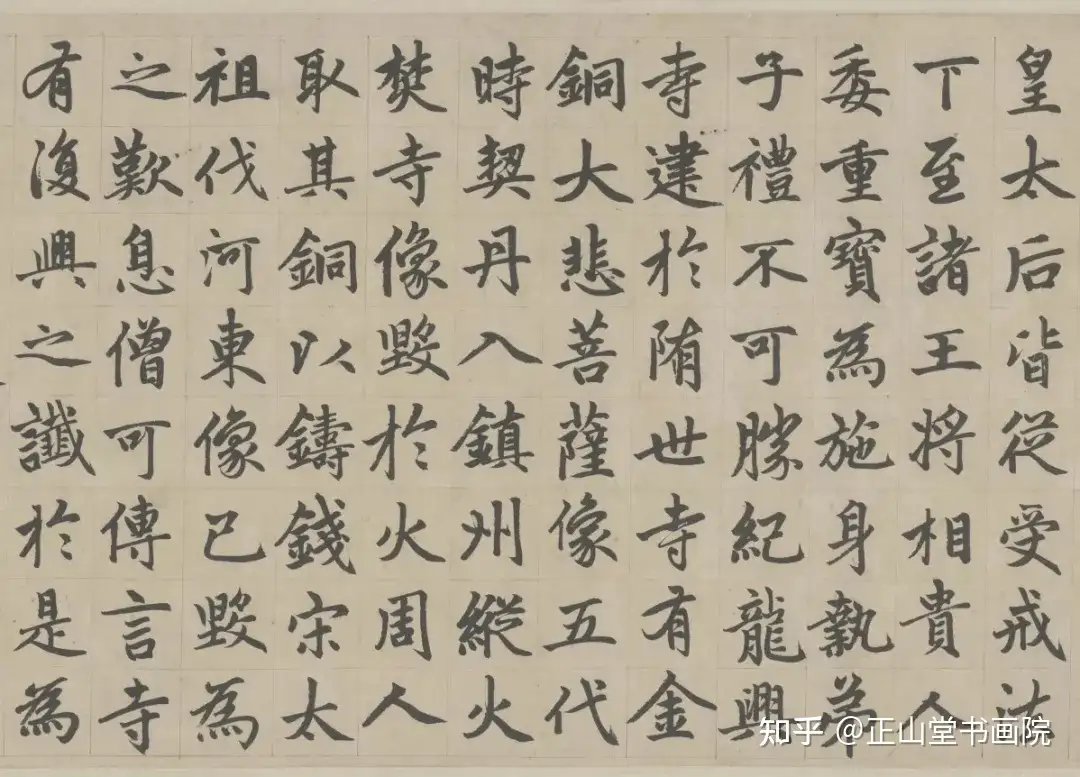 皇太后皆從受戒法
下至諸王將相貴人
委重寶為施身執弟
子禮不可勝紀龍興
寺建於隋世寺有金
銅大悲菩薩像五代
時契丹入鎮州縱火
焚寺像毀於火周人
取其銅以鑄錢宋太
祖伐河東像已毀為
之歎息僧可傳言寺
有復興之讖於是為
知乎 @正山堂书画院